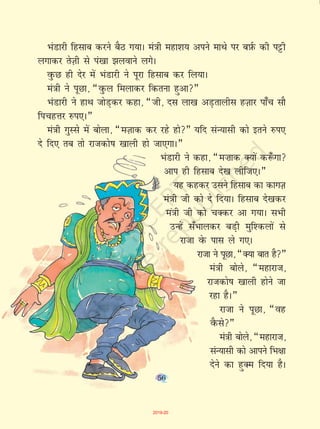 भंडारी हिसाब करने बैठ गया। मंत्री महाशय अपने माथे पर बर्फ़ की पट्टी
लगाकर तेज़ी से पंखा झलवाने लगे।
कुछ ही देर में भंडारी ने पूरा हिसाब कर लिया।
मंत्री ने पूछा, “कुल मिलाकर कितना हुआ?”
भंडारी ने हाथ जोड़कर कहा, “जी, दस लाख अड़तालीस हज़ार पाँच सौ
पिचहत्तर रुपए।”
मंत्री गुस्से में बोला, “मज़ाक कर रहे हो?” यदि संन्यासी को इतने रुपए
दे दिए तब तो राजकोष खाली हो जाएगा।”
भंडारी ने कहा, “मज़ाक क्यों करूँगा?
आप ही हिसाब देख लीजिए।”
यह कहकर उसने हिसाब का कागज़
मंत्री जी को दे दिया। हिसाब देखकर
मंत्री जी को चक्कर आ गया। सभी
उन्हें सँभालकर बड़ी मुश्किलों से
राजा के पास ले गए।
राजा ने पूछा, “क्या बात है?”
मंत्री बोले, “महाराज,
राजकोष खाली होने जा
रहा है।”
राजा ने पूछा, “वह
कैसे?”
मंत्री बोले, “महाराज,
संन्यासी को आपने भिक्षा
देने का हुक्म दिया है।
56
2019-20